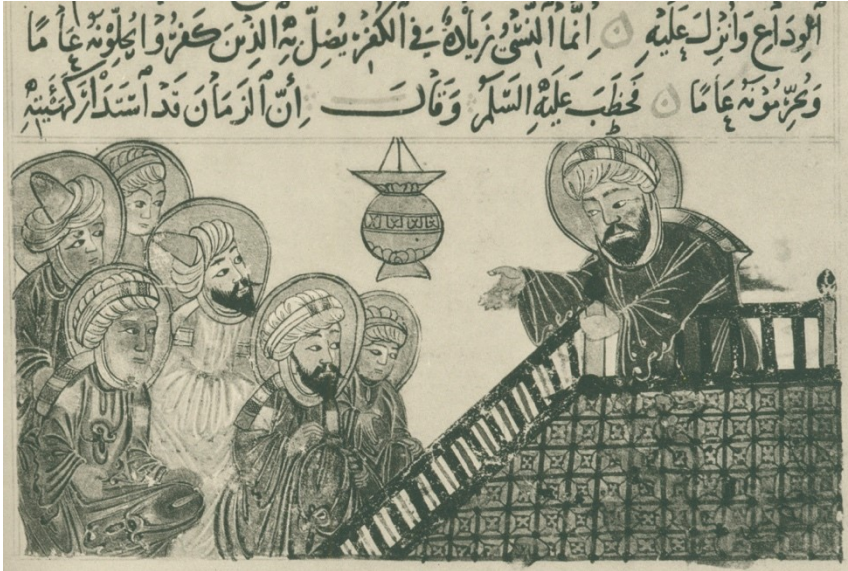 الوداع وانزل عليه إنما النسي زيادة في الكفر يضل به الذين كفروا يحلونه عاما
ويحرمونه عاما فخطب عليه السلم وقال إن الزمان قد استدار كهيئته